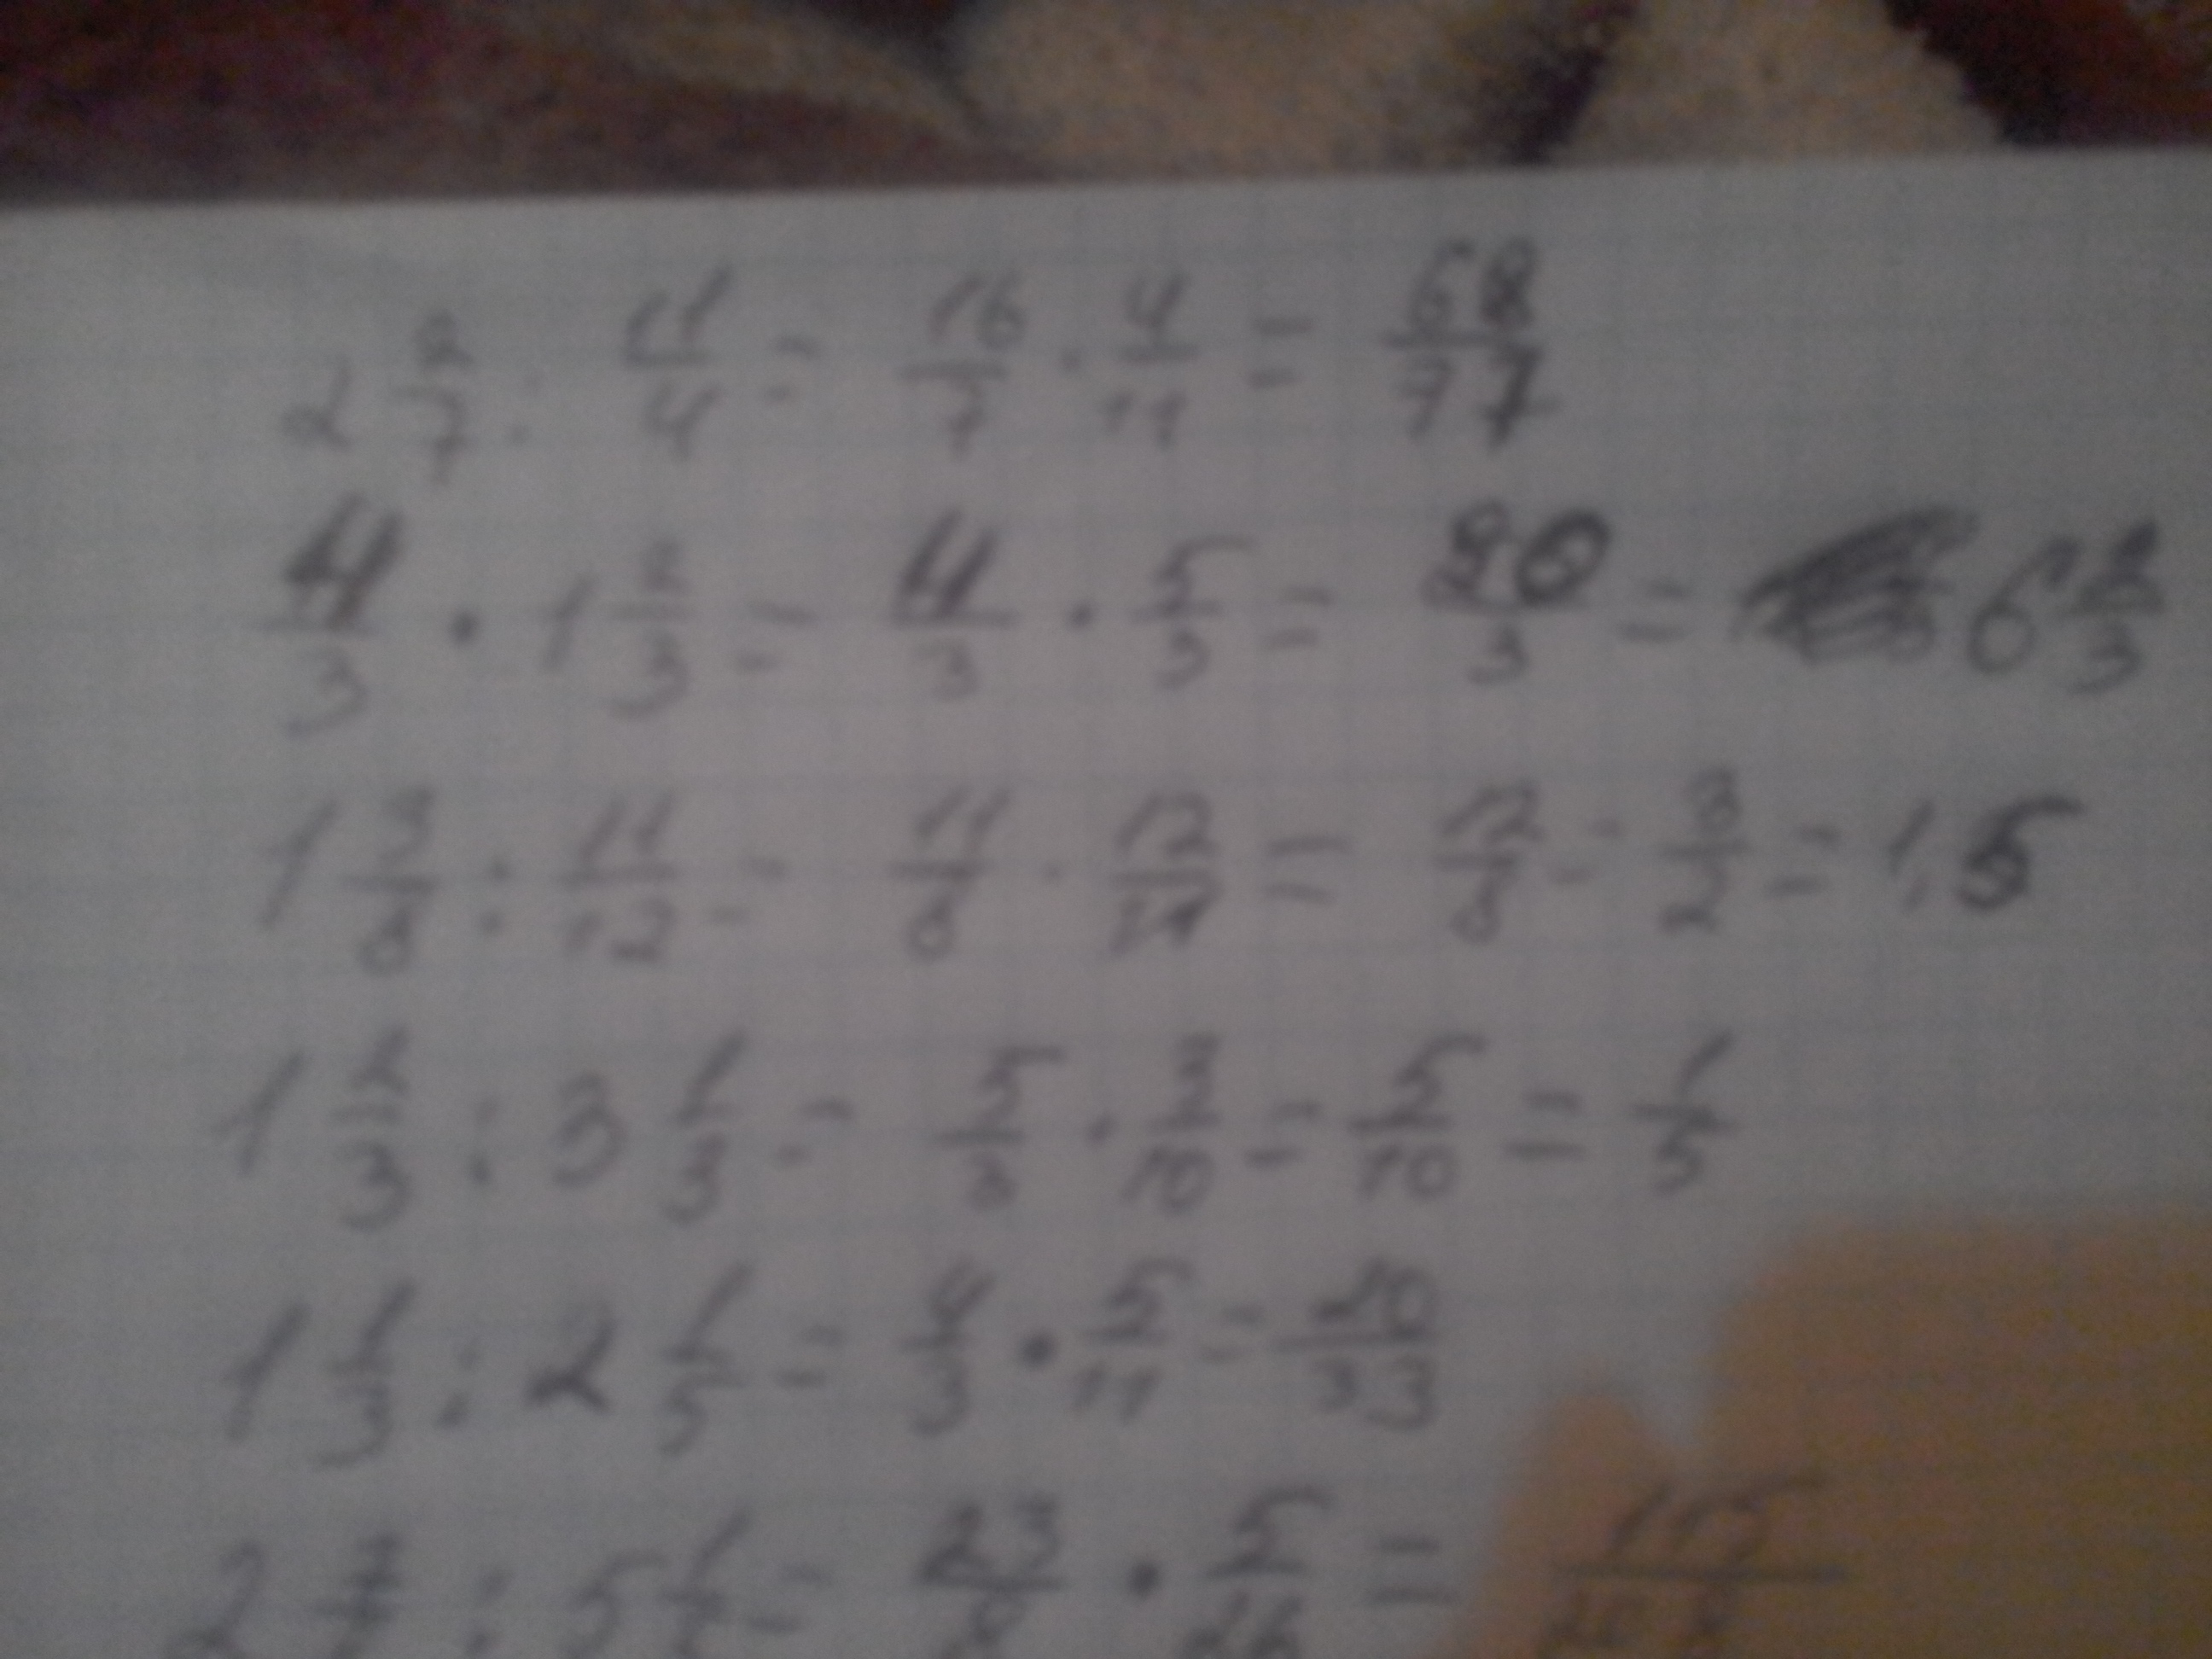 2 2/7 : 11/4 = 16/7 · 4/11 = 68/77
4/3 · 1 2/3 = 4/3 · 5/3 = 20/3 = 6 2/3
1 3/8 : 11/12 = 11/8 · 12/11 = 12/8 = 3/2 = 1,5
1 2/3 : 3 1/3 = 5/3 · 3/10 = 5/10 = 1/5
1 1/3 : 2 1/5 = 4/3 · 5/11 = 20/33
2 7/ : 5 1/ = 23/8 · 5/26 = 115/